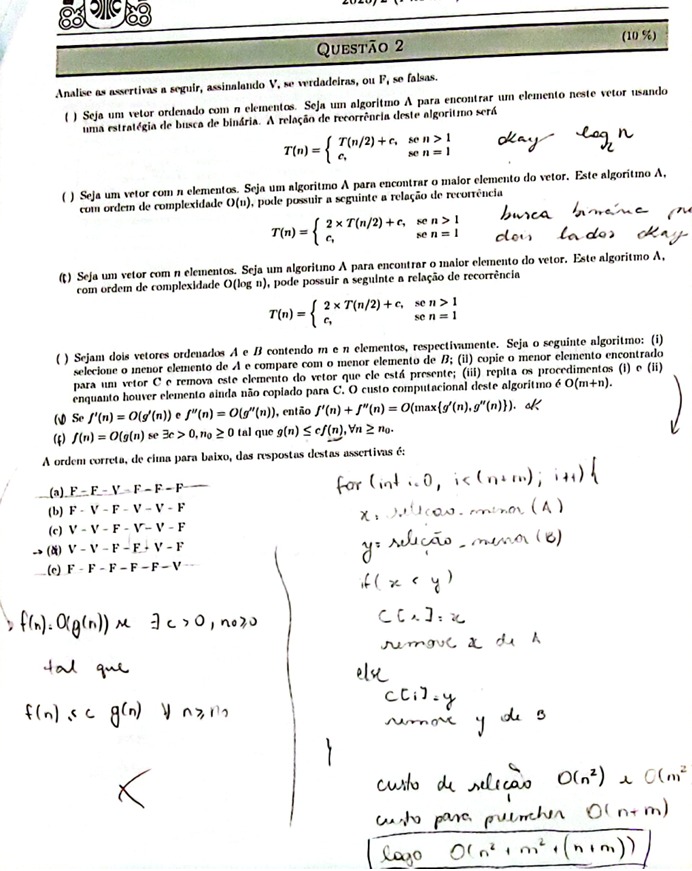 QUESTÃO 2
(10 %)
Analise as assertivas a seguir, assinalando V, se verdadeiras, ou F, se falsas.
( ) Seja um vetor ordenado com n elementos. Seja um algoritmo A para encontrar um elemento neste vetor usando
uma estratégia de busca de binária. A relação de recorrência deste algoritmo será
T(n) = { T(n/2) + c, se n > 1
c, se n = 1
okay log₂ n
( ) Seja um vetor com n elementos. Seja um algoritmo A para encontrar o maior elemento do vetor. Este algoritmo A,
com ordem de complexidade O(n), pode possuir a seguinte a relação de recorrência
T(n) = { 2 × T(n/2) + c, se n > 1
c, se n = 1
busca binária
dois lados okay
(f) Seja um vetor com n elementos. Seja um algoritmo A para encontrar o maior elemento do vetor. Este algoritmo A,
com ordem de complexidade O(log n), pode possuir a seguinte a relação de recorrência
T(n) = { 2 × T(n/2) + c, se n > 1
c, se n = 1
( ) Sejam dois vetores ordenados A e B contendo m e n elementos, respectivamente. Seja o seguinte algoritmo: (i)
selecione o menor elemento de A e compare com o menor elemento de B; (ii) copie o menor elemento encontrado
para um vetor C e remova este elemento do vetor que ele está presente; (iii) repita os procedimentos (i) e (ii)
enquanto houver elemento ainda não copiado para C. O custo computacional deste algoritmo é O(m+n).
(V) Se f'(n) = O(g'(n)) e f''(n) = O(g''(n)), então f'(n) + f''(n) = O(max{g'(n), g''(n)}). ok
(f) f(n) = O(g(n) se ∃c > 0, n₀ ≥ 0 tal que g(n) ≤ cf(n), ∀n ≥ n₀.
A ordem correta, de cima para baixo, das respostas destas assertivas é:
(a) F - F - V - F - F - F
(b) F - V - F - V - V - F
(c) V - V - F - V - V - F
→ (d) V - V - F - F - V - F
(e) F - F - F - F - F - V
f(n) = O(g(n)) se ∃ c > 0, n₀ ≥ 0
tal que
f(n) ≤ c g(n) ∀ n ≥ n₀
for (int i=0, i<(n+m); i++) {
x = selecao_menor (A)
y = seleção_menor (B)
if (x < y)
C[i] = x
remove x de A
else
C[i] = y
remove y de B
}
custo de seleção O(n²) e O(m²
custo para preencher O(n+m)
logo O(n² + m² + (n+m))